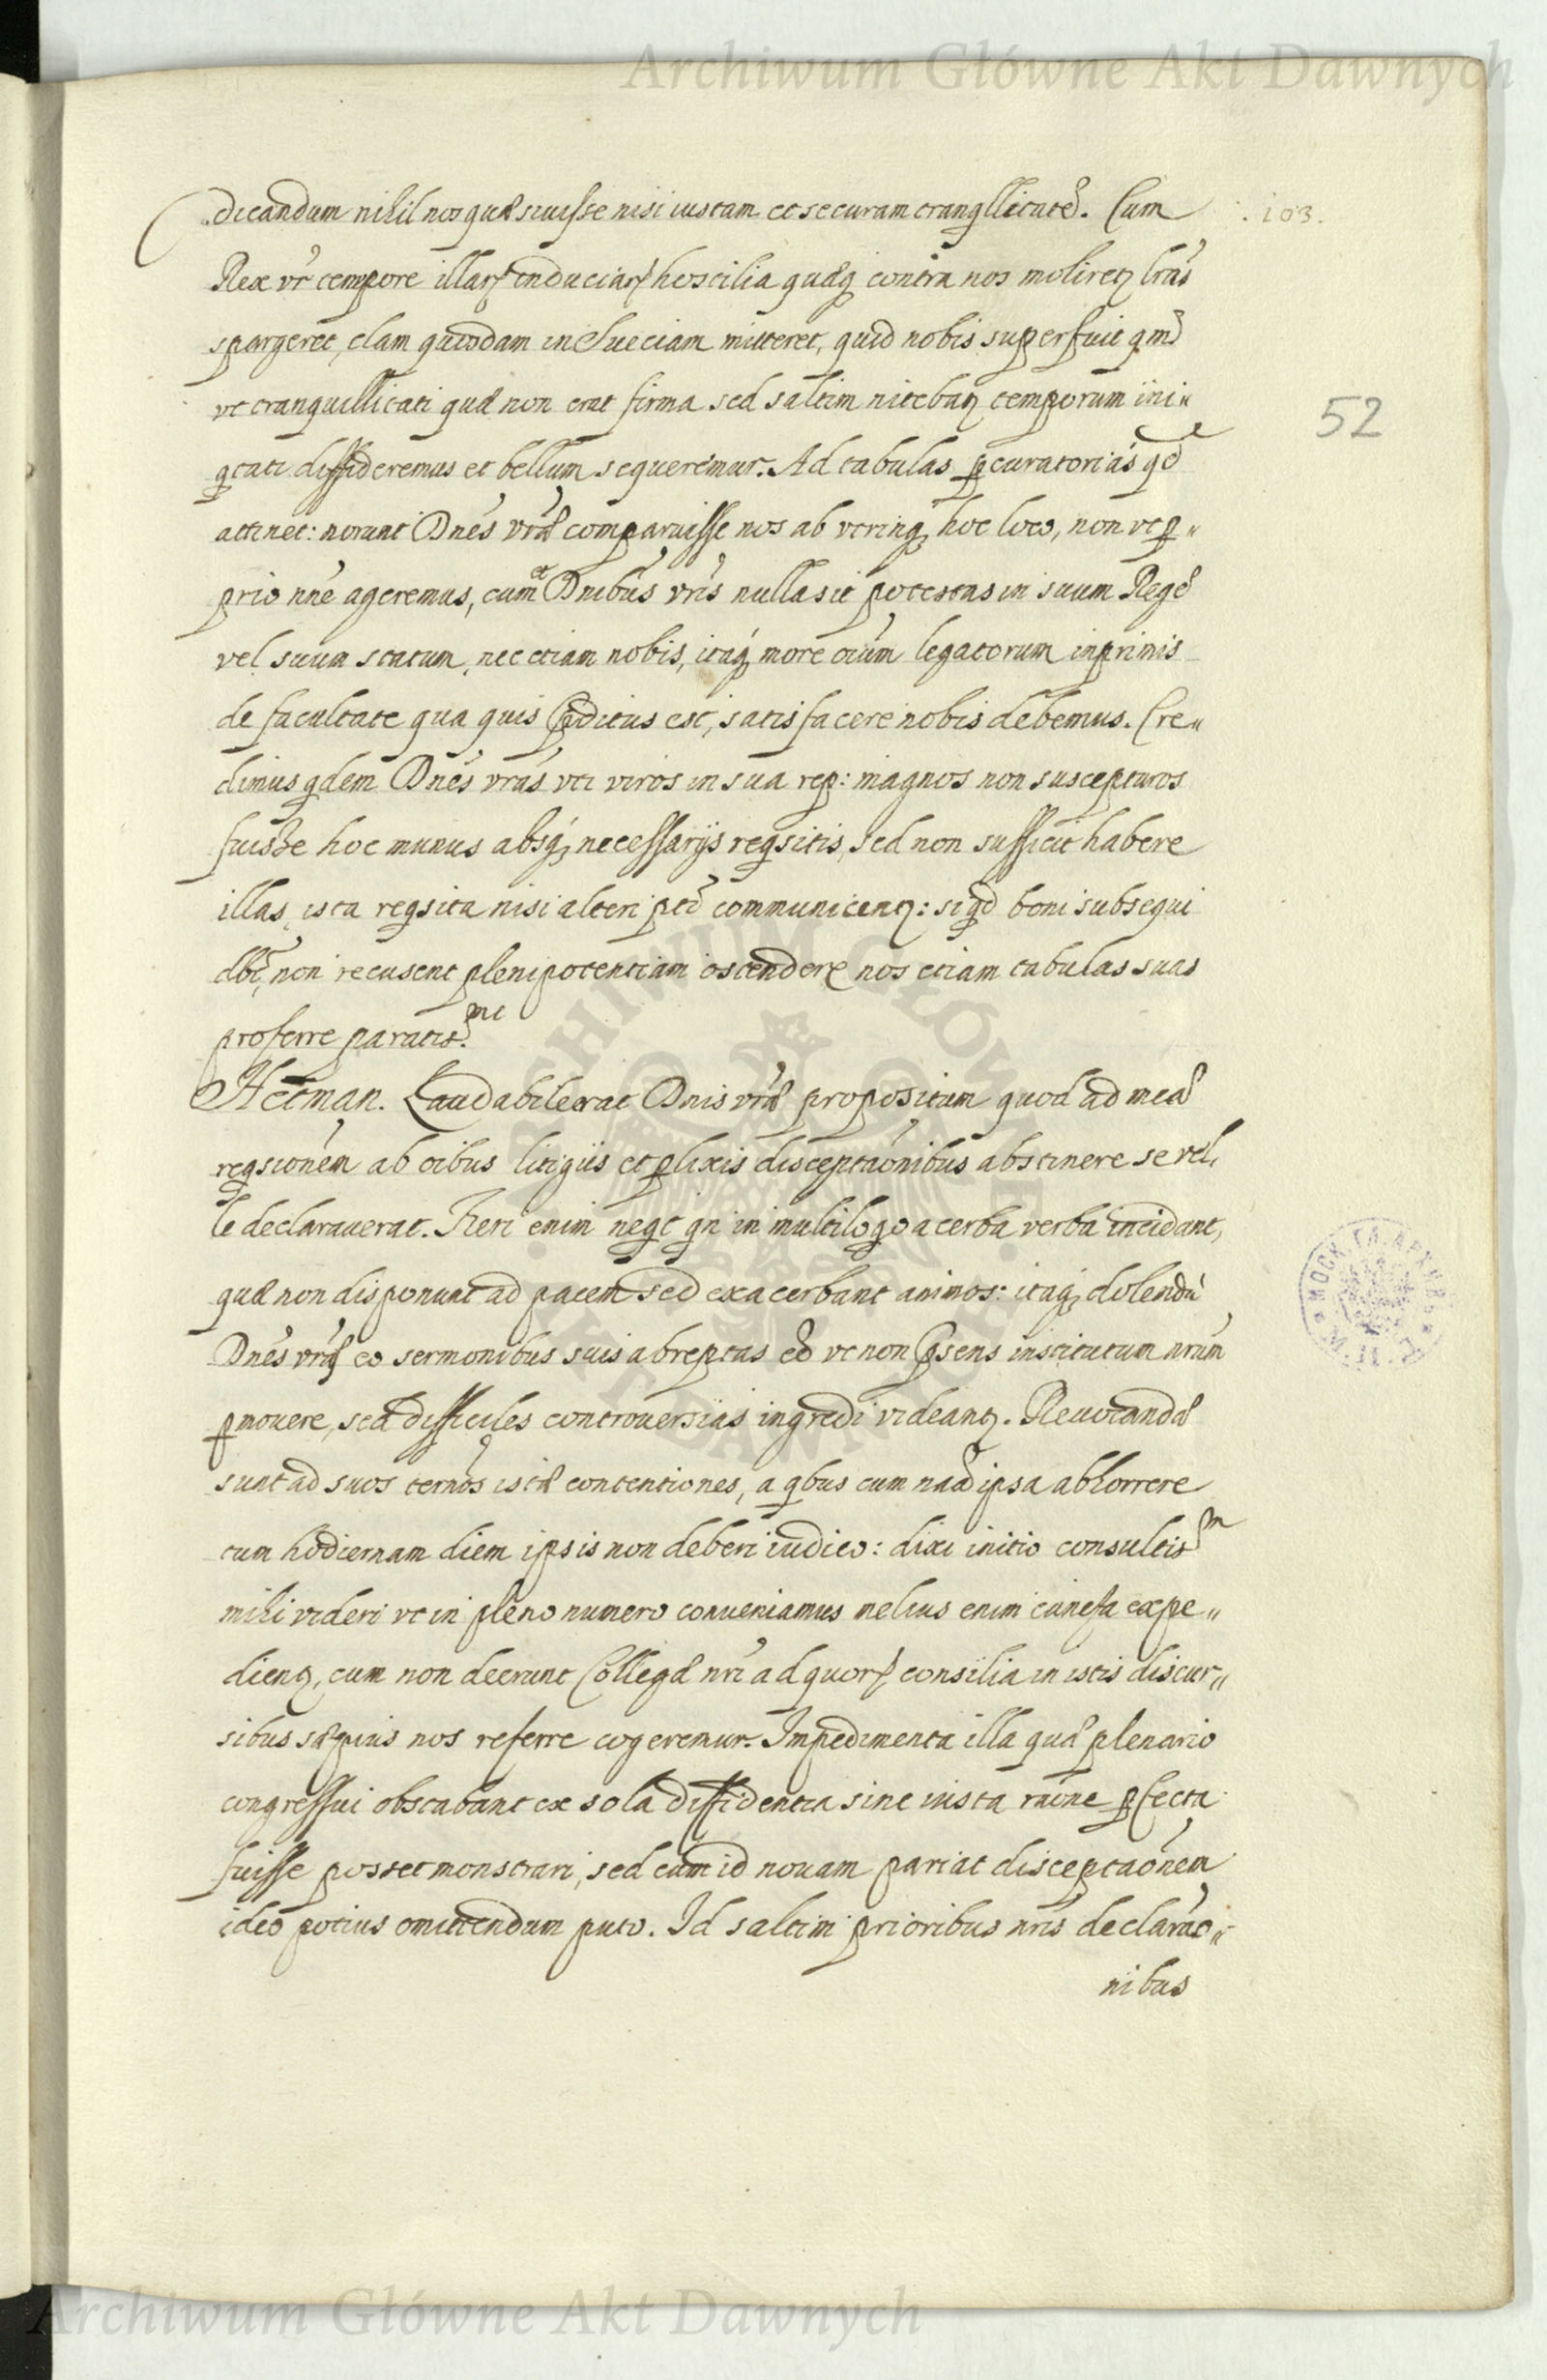 Archiwum Główne Akt Dawnych
dicandum nihil nos quæsivisse nisi iustam et securam tranqllitatē. Cum
:103.
Rex vr̃ tempore illarꝝ induciarꝝ hostilia quæqȝ contra nos moliretꝫ lr̃as
spargeret, clam quosdam in Sueciam mitteret, quid nobis superfuit qm̃
vt tranquillitati quæ non erat firma sed saltim nitebatꝫ temporum ini„
52
qtati diffideremus et bellum sequeremur. Ad tabulas ꝓcuratorias qd̃
attinet: norunt Dnẽs vr̃æ comparuisse nos ab vtrinqȝ hoc loco, non vt ꝓ„
prio nñe ageremus, cum et Dnibus vr̃is nulla sit potestas in suum Regē
vel suum statum, nec etiam nobis, itaqȝ more oĩum legatorum inprimis
de facultate qua quis p̃ditus est, satisfacere nobis debemus. Cre„
dimus qdem Dnẽs vr̃as vti viros in sua rep: magnos non suscepturos
fuisse hoc munus absqȝ necessarijs reqsitis, sed non sufficit habere
illas, ista reqsita nisi alteri pti communicentꝫ: si qd boni subsequi
dbt, non recusent plenipotentiam ostendere nos etiam tabulas suas
proferre paratis me.
Hetman. Laudabile erat Dnis vr̃æ propositum quod ad meā
reqsionẽm ab oĩbus litigiis et ꝓlixis disceptãonibus abstinere se vel„
le declarauerat. Fieri enim neqt qn in multiloqo acerba verba incidant,
quæ non disponunt ad pacem sed exacerbant animos: itaqȝ dolendũ
Dnẽs vr̃as eo sermonibus suis abreptas eē vt non p̃sens institutum nr̃um
ꝓmouere, sed difficiles controuersias ingredi videantꝫ. Reuocandæ
sunt ad suos termõs istæ contentiones, a qbus cum nãa ipsa abhorrere
tum hodiernam diem ipsis non deberi iudico: dixi initio consultis m
mihi videri vt in pleno numero conueniamus melius enim cuncta expe„
dientꝫ, cum non deerunt Collegæ nr̃i ad quorꝝ consilia in istis discur„
sibus sæpius nos referre cogeremur. Impedimenta illa quæ plenario
congressui obstabant ex sola diffidentia sine iusta rãone ꝓfecta
fuisse posset monstrari, sed cum id nouam pariat disceptãonem
ideo potius omittendum puto. Id saltim prioribus nr̃is declarãо„
nibus
Archiwum Główne Akt Dawnych